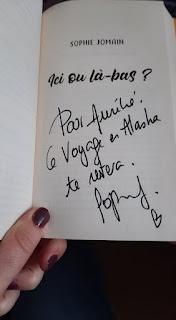 SOPHIE JOMAIN
Ici ou là-bas ?
Pour Aurélie.
Ce Voyage en Alaska
te ravira.